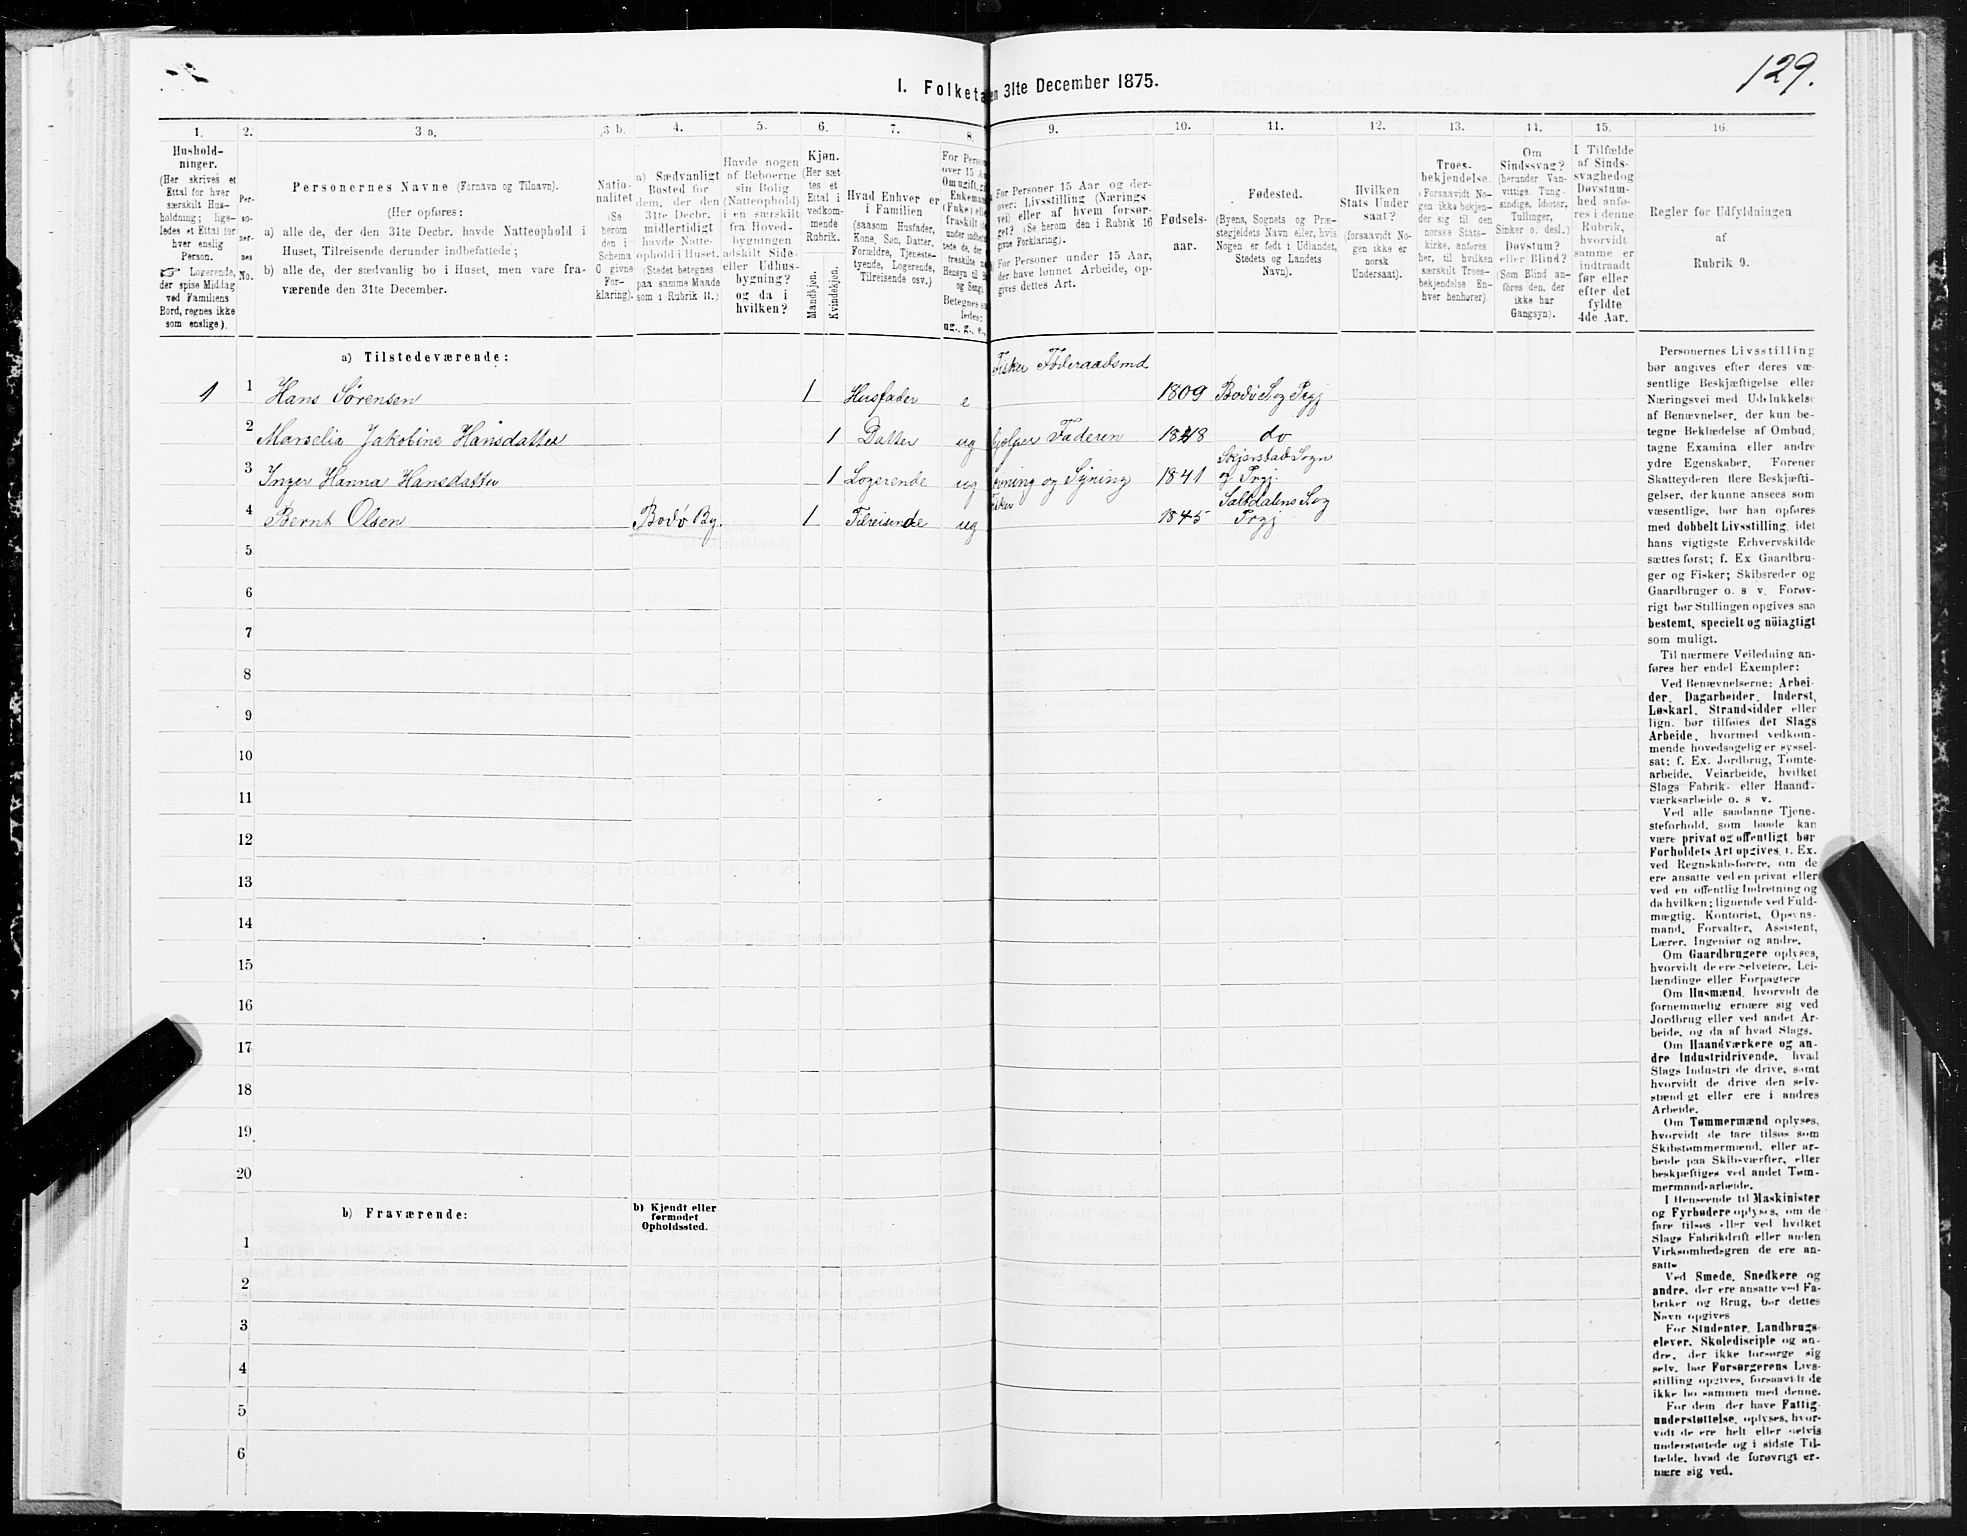 129.
I. Folketa en 31te December 1875.
1. 2. 3 a. 3 b. 4. 5. 6. 7. 8. 9. 10. 11. 12. 13. 14. 15. 16.
Hushold-
ninger.
(Her skrives et
Ettal for hver
særskilt Hus-
holdning; lige-
ledes et Ettal for
hver enslig
Person.
☞ Logerende,
der spise Middag
ved Familiens
Bord, regnes ikke
som enslige).
Per-
so-
ner-
nes
No.
Personernes Navne (Fornavn og Tilnavn).
(Her opføres:
a) alle de, der den 31te Decbr. havde Natteophold i
Huset, Tilreisende derunder indbefattede;
b) alle de, der sædvanlig bo i Huset, men vare fra-
værende den 31te December.
Natio-
nalitet
(Se
herom
den i
Schema
C givne
For-
klaring).
a) Sædvanligt
Bosted for
dem, der den
31te Decbr.
midlertidigt
havde Natte-
ophold i Huset.
(Stedet betegnes
paa samme Maade
som i Rubrik 11.)
Havde nogen
af Beboerne
sin Bolig
(Natteophold)
i en særskilt
fra Hoved-
bygningen
adskilt Side-
eller Udhus-
bygning?
og da i
hvilken?
Kjøn.
(Her sæt-
tes et
Ettal i
vedkom-
mende
Rubrik.
Mandkjøn.
Kvindekjøn.
Hvad Enhver er
i Familien
(saasom Husfader,
Kone, Søn, Datter,
Forældre, Tjeneste-
tyende, Logerende,
Tilreisende osv.)
For Person
over 15 A
Om ugift, g
Enkeman
(Enke) el
fraskilt
tede de, der
fraskilte
Hensyn til B
og Seng.
Betegnes s
ledes:
ug., g., e.,
For Personer 15 Aar og der-
over: Livsstilling (Nærings
vei) eller af hvem forsør-
get? (Se herom den i Rubrik 16
givne Forklaring).
For Personer under 15 Aar,
der have lønnet Arbeide, op-
gives dettes Art.
Fødsels-
aar.
Fødested.
(Byens, Sognets og Præ-
stegjeldets Navn eller, hvis
Nogen er født i Udlandet,
Stedets og Landets
Navn).
Hvilken
Stats Under
saat?
(forsaavidt No-
gen ikke er
norsk
Undersaat).
Troes-
bekjendelse.
(Forsaavidt No-
gen ikke bekjen-
der sig til den
norske Stats-
kirke, anføres
her, til hvilken
særskilt Troes-
bekjendelse En-
hver henhører)
Om
Sindssvag?
(herunder Van-
vittige, Tung-
sindige, Idioter,
Tullinger,
Sinker o. desl.)
Døvstum?
eller Blind?
(Som Blind an-
føres den, der
ikke har
Gangsyn).
I Tilfælde
af Sinds-
svaghedog
Døvstum-
hed anfø-
res i denne
Rubrik,
hvorvidt
samme er
indtraadt
før eller
efter det
fyldte
4de Aar.
Regler for Udfyldningen
af
Rubrik 9.
a) Tilstedeværende:
Fisker Føderaadsmd
1 1 Hans Sørensen 1 Husfader e 1809 Bodø S. og Prgj
2 Marselia Jakobine Hansdatter 1 Datter ug hjelper Faderen 1848 do
Skjerstad Sogn
3 Inger Hanna Hansdatter 1 Logerende ug og Syning 1841 og Prgj.
Saltdalens S. og
4 Bernt Olsen Bodø By. 1 Tilreisende ug 1845 Prgj
5
6
7
8
9
10
11
12
13
14
15
16
17
18
19
20
b) Fraværende:
b) Kjendt eller
formodet
Opholdssted.
1
2
3
4
5
6
Personernes Livsstilling
bør angives efter deres væ-
sentlige Beskjæftigelse eller
Næringsvei med Udelukkelse
af Benævnelser, der kun be-
tegne Beklædelse af Ombud,
tagne Examina eller andre
ydre Egenskaber. Forener
Skatteyderen flere Beskjæfti-
gelser, der kunne ansees som
væsentlige, bør han opføres
med dobbelt Livsstilling, idet
hans vigtigste Erhvervskilde
sættes først; f. Ex Gaardbru-
ger og Fisker; Skibsreder og
Gaardbruger o. s v. Forøv-
rigt bør Stillingen opgives saa
bestemt, specielt og nöiagtigt
som muligt.
Til nærmere Veiledning an-
føres her endel Exempler:
Ved Benævnelserne: Arbei-
der, Dagarbeider, Inderst,
Løskarl, Strandsidder eller
lign. bør tilføies det Slags
Arbeide, hvormed vedkom-
mende hovedsagelig er syssel-
sat; f. Ex. Jordbrug, Tomte-
arbeide, Veiarbeide, hvilket
Slags Fabrik- eller Haand-
værksarbeide o. s v.
Ved alle saadanne Tjene-
steforhold, som baade kan
være privat og offentligt, bør
Forholdets Art opgives, f. Ex.
ved Regnskabsførere, om de
ere ansatte ved en privat eller
ved en offentlig Indretning og
da hvilken; lignende ved Fuld-
mægtig, Kontorist, Opsyns-
mand, Forvalter, Assistent,
Lærer, Ingeniør og andre.
Om Gaardbrugere oplyses,
hvorvidt de ere Selveiere, Lei-
lændinge eller Forpagtere
Om Husmænd, hvorvidt de
fornemmelig ernære sig ved
Jordbrug eller ved andet Ar-
beide, og da af hvad Slags.
Om Haandværkere og an-
dre Industridrivende, hvad
Slags Industri de drive, samt
hvorvidt de drive den selv-
stændigt eller ere i andres
Arbeide.
Om Tømmermænd oplyses,
hvorvidt de fare tilsøs som
Skibstømmermænd, eller ar-
beide paa Skibsværfter, eller
beskjæftiges ved andet Tøm-
mermandsarbeide.
I Henseende til Maskinister
og Fyrbødere oplyses, om de
fare tilsøs eller ved hvilket
Slags Fabrikdrift eller anden
Virksomhedsgren de ere an-
satte
Ved Smede, Snedkere og
andre, der ere ansatte ved Fa-
briker og Brug, bør dettes
Navn opgives
For Studenter, Landbrugs-
elever, Skoledisciple og an-
dre, der ikke forsørge sig
selv, bør Forsørgerens Livs-
stilling opgives, forsaavidt de
ikke bo sammen med denne.
For dem, der have Fattig-
understøttelse, oplyses, hvor-
vidt de ere helt eller delvis
understøttede og i sidste Til-
fælde, hvad de forøvrigt er-
nære sig ved.